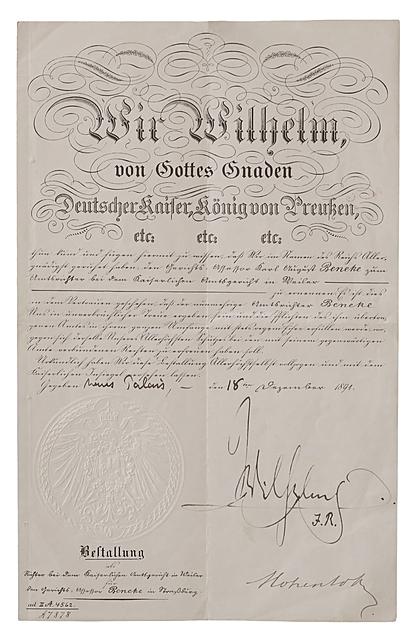 Wir Wilhelm,
von Gottes Gnaden
Deutscher Kaiser, König von Preußen,
etc: etc: etc:
thun kund und fügen hiermit zu wissen, daß Wir im Namen des Reichs Aller-
gnädigst geruhet haben, den Gerichts-Assessor Karl August Beneke zum
Amtsrichter bei dem Kaiserlichen Amtsgericht in Weiler
zu ernennen. Es ist dies
in dem Vertrauen geschehen, daß der nunmehrige Amtsrichter Beneke
Uns in unverbrüchlicher Treue ergeben sein und die Pflichten des ihm übertra-
genen Amtes in ihrem ganzen Umfange mit stets regem Eifer erfüllen werde, wo-
gegen sich derselbe Unseres Allerhöchsten Schutzes bei den mit seinem gegenwärtigen
Amte verbundenen Rechten zu erfreuen haben soll.
Urkundlich haben Wir diese Bestallung Allerhöchstselbst vollzogen und mit dem
Kaiserlichen Insiegel versehen lassen.
Gegeben Neues Palais, — den 18ten Dezember 1894.
Wilhelm
J.R.
Bestallung
als
Richter bei dem Kaiserlichen Amtsgericht in Weiler
für
den Gerichts-Assessor Beneke in Straßburg.
ad II A. 4562.
Hohenlohe